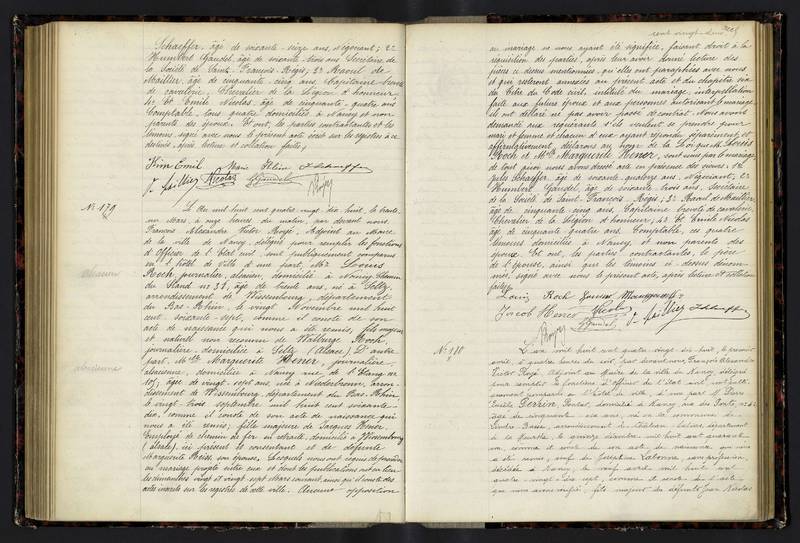 Schaeffer, âgé de soixante-seize ans, Négociant; 2°
Humbert Gandel, âgé de soixante-trois ans, Secrétaire de
la Société de Saint-François-Régis; 3° Raoul de
Mailliez, âgé de cinquante-cinq ans, Capitaine breveté
de cavalerie, Chevalier de la Légion d'honneur
4° Et Emile Nicolas, âgé de cinquante-quatre ans
Comptable, tous quatre domiciliés à Nancy et non
parents des époux. Et ont, les parties contractantes et les
témoins, signé avec nous le présent acte inscrit sur les registres à ce
destinés, après lecture et collation faite;
Nicolas
N° 179
L'An mil huit cent quatre vingt-dix huit, le trente
un Mars, à onze heures du matin, par devant nous
François Alexandre Victor Royé, Adjoint au Maire
de la ville de Nancy, délégué pour remplir les fonctions
d'Officier de l'état civil, sont publiquement comparus
en l'hôtel de Ville d'une part, Mr Louis
Roch, journalier, alsacien, domicilié à Nancy, Chemin
du Stand n° 31, âgé de trente ans, né à Seltz,
arrondissement de Wissembourg, département
du Bas-Rhin, le vingt Novembre mil huit
cent soixante-sept, comme il conste de son
acte de naissance qui nous a été remis; fils majeur
et naturel non reconnu de Walburge Roch,
journalière, domiciliée à Seltz (Alsace). D'autre
part, Mlle Marguerite Hener, journalière,
alsacienne, domiciliée à Nancy rue de l'Etang n°
10, âgée de vingt-sept ans, née à Niederbronn, arron-
dissement de Wissembourg, département du Bas Rhin,
le vingt-trois Septembre mil huit cent soixante-
dix, comme il conste de son acte de naissance qui
nous a été remis; fille majeure de Jacques Hener,
Employé de chemin de fer en retraite, domicilié à Wissembourg
(Alsace), ici présent et consentant et de défunte
Marguerite son épouse. Lesquels nous ont requis de procéder
au mariage projeté entre eux et dont les publications ont eu lieu
les dimanches vingt et vingt-sept Mars courant, ainsi qu'il conste des
actes inscrits sur les registres de cette ville. Aucune opposition
alsacien
alsacienne
cent vingt-deux
au mariage ne nous ayant été signifiée, faisant droit à la
réquisition des parties, après leur avoir donné lecture des
pièces ci dessus mentionnées, qu'elles ont paraphées avec nous
et qui resteront annexées au présent acte et du chapitre six
du titre du Code civil, intitulé du mariage, interpellation
faite aux futurs époux et aux personnes autorisant le mariage
ils ont déclaré ne pas avoir passé de contrat. Nous avons
demandé aux requérants s'ils veulent se prendre pour
mari et femme et chacun d'eux ayant répondu séparément et
affirmativement, déclarons au nom de la Loi que Mr Louis
Roch et Mlle Marguerite Hener, sont unis par le mariage
de tout quoi nous avons dressé acte en présence des sieurs: 1°
Jules Schaeffer, âgé de soixante-quatorze ans, Négociant; 2°
Humbert Gandel, âgé de soixante-trois ans, Secrétaire
de la Société de Saint-François-Régis; 3° Raoul de Mailliez
âgé de cinquante-cinq ans, Capitaine breveté de cavalerie,
Chevalier de la Légion d'honneur; 4° Et Emile Nicolas
âgé de cinquante-quatre ans, Comptable, ces quatre
témoins domiciliés à Nancy, et non parents des
époux. Et ont, les parties contractantes, le père
de l'épouse, ainsi que les témoins ci dessus dénom-
més, signé avec nous le présent acte, après lecture et collation
faites;
Louis Roch
Jacob Hener Nicolas
N° 180
L'an mil huit cent quatre vingt dix huit, le premier
avril, à quatre heures du soir, par devant nous François Alexandre
Victor Royé, Adjoint au Maire de la ville de Nancy, délégué
pour remplir les fonctions d'Officier de l'état civil, sont publi-
quement comparus en l'hôtel de ville, d'une part Mr Pierre
Emile Perrin, domicilié à Nancy, rue des Ponts, n°
âgé de cinquante-six ans, né en la commune de
département
de la Meurthe, le quinze décembre mil huit cent quarante
un, comme il conste de son acte de naissance qui nous
a été remis; veuf de Joséphine sans profession,
décédée à Nancy, le neuf avril mil huit cent
quatre-vingt-dix sept, comme il conste de l'acte
qui nous a été remis; fils majeur de défunts Jean Nicolas